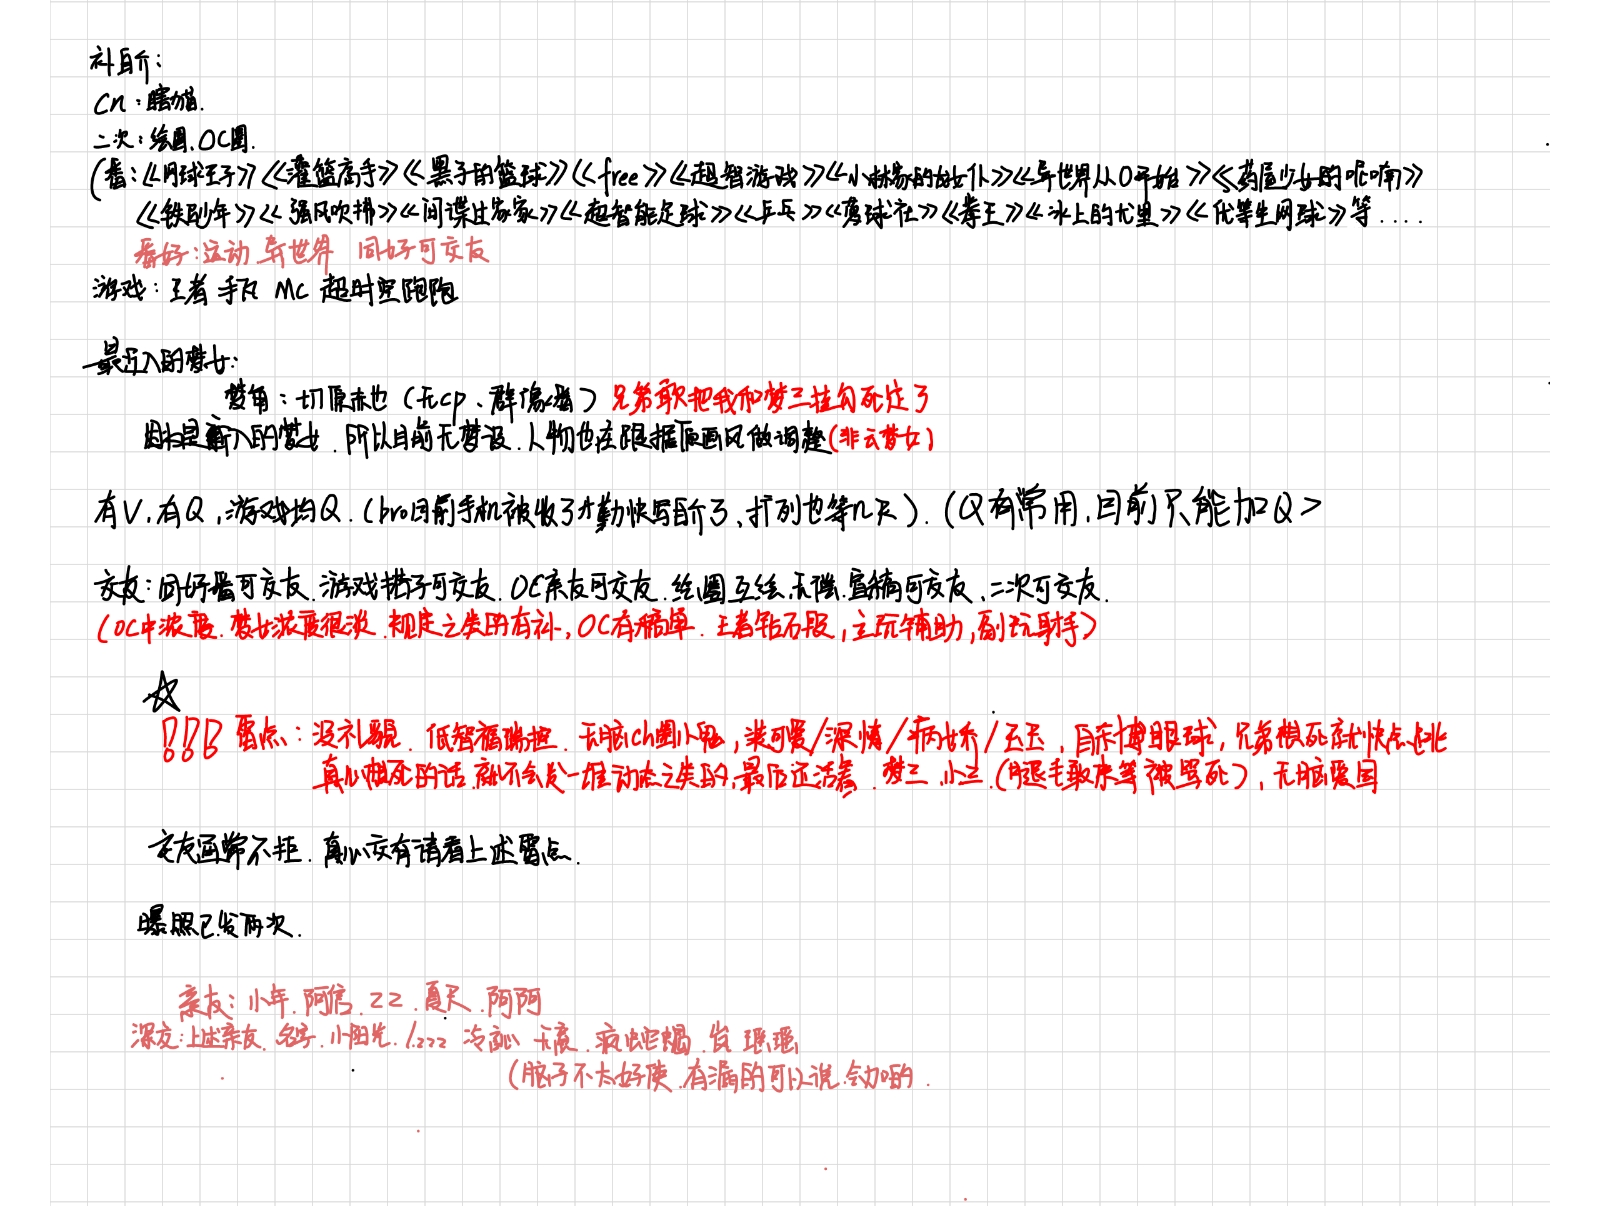 补自介：
Cn：瞎猫.
二次：绘圈、OC圈.
（番：《网球王子》《灌篮高手》《黑子的篮球》《free》《超智游戏》《小林家的女仆》《异世界从0开始》《药屋少女的呢喃》
《铁剑少年》《强风吹拂》《间谍过家家》《超智能足球》《乒乓》《篮球社》《拳王》《冰上的尤里》《优等生网球》等....
番好：运动 异世界 同好可交友
游戏：王者 手瓦 MC 超时空跑跑
最近入的梦女：
梦角：切原赤也（无cp、群像番）兄弟敢把我和梦三挂勾死定了
因为是新入的梦女.所以目前无梦设.人物也在跟据原画风做调整(非云梦女)
有V、有Q，游戏均Q.（bro目前手机被收了才勤快写自介了、扩列也等几天）.（Q有常用，目前只能加Q>
交友：同好番可交友.游戏搭子可交友.OC亲友可交友.绘圈互绘、无偿、宣稿可交友、二次可交友.
（OC中浓度.梦女浓度很淡.规定之类的有补，OC有稿单.王者钻石段，主玩辅助，副玩射手）
!!! 雷点：没礼貌.低智福瑞控.无脑ch圈小鬼，装可爱/深情/病娇/玉玉，自杀博眼球，兄弟想死就快点去
真心想死的话.就不会发一堆动态之类的，最后还活着.梦三.小三.(腿毛取束等被骂死)，无脑爱国
交友通常不拒.真心交有请看上述雷点.
曝照已发两次.
亲友：小年.阿信.ZZ.夏天.阿阿
深交：上述亲友.名字.小阳光.冷
（脑子不太好使.有漏的可以说.会加的.